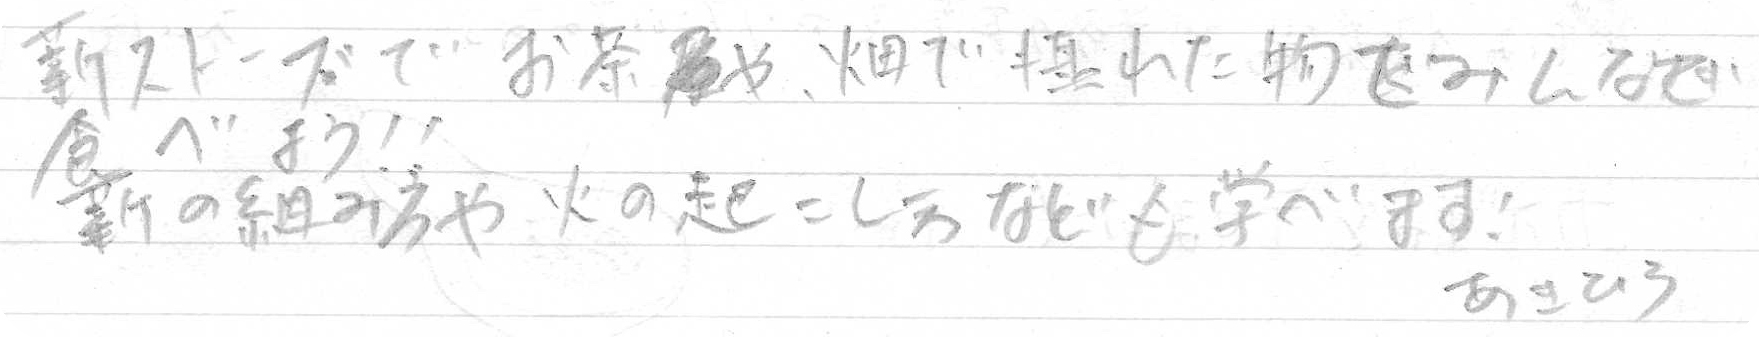 薪ストーブでお茶や、畑で採れた物をみんなで
食べよう!!
薪の組み方や火の起こし方なども学べます!
あきひろ